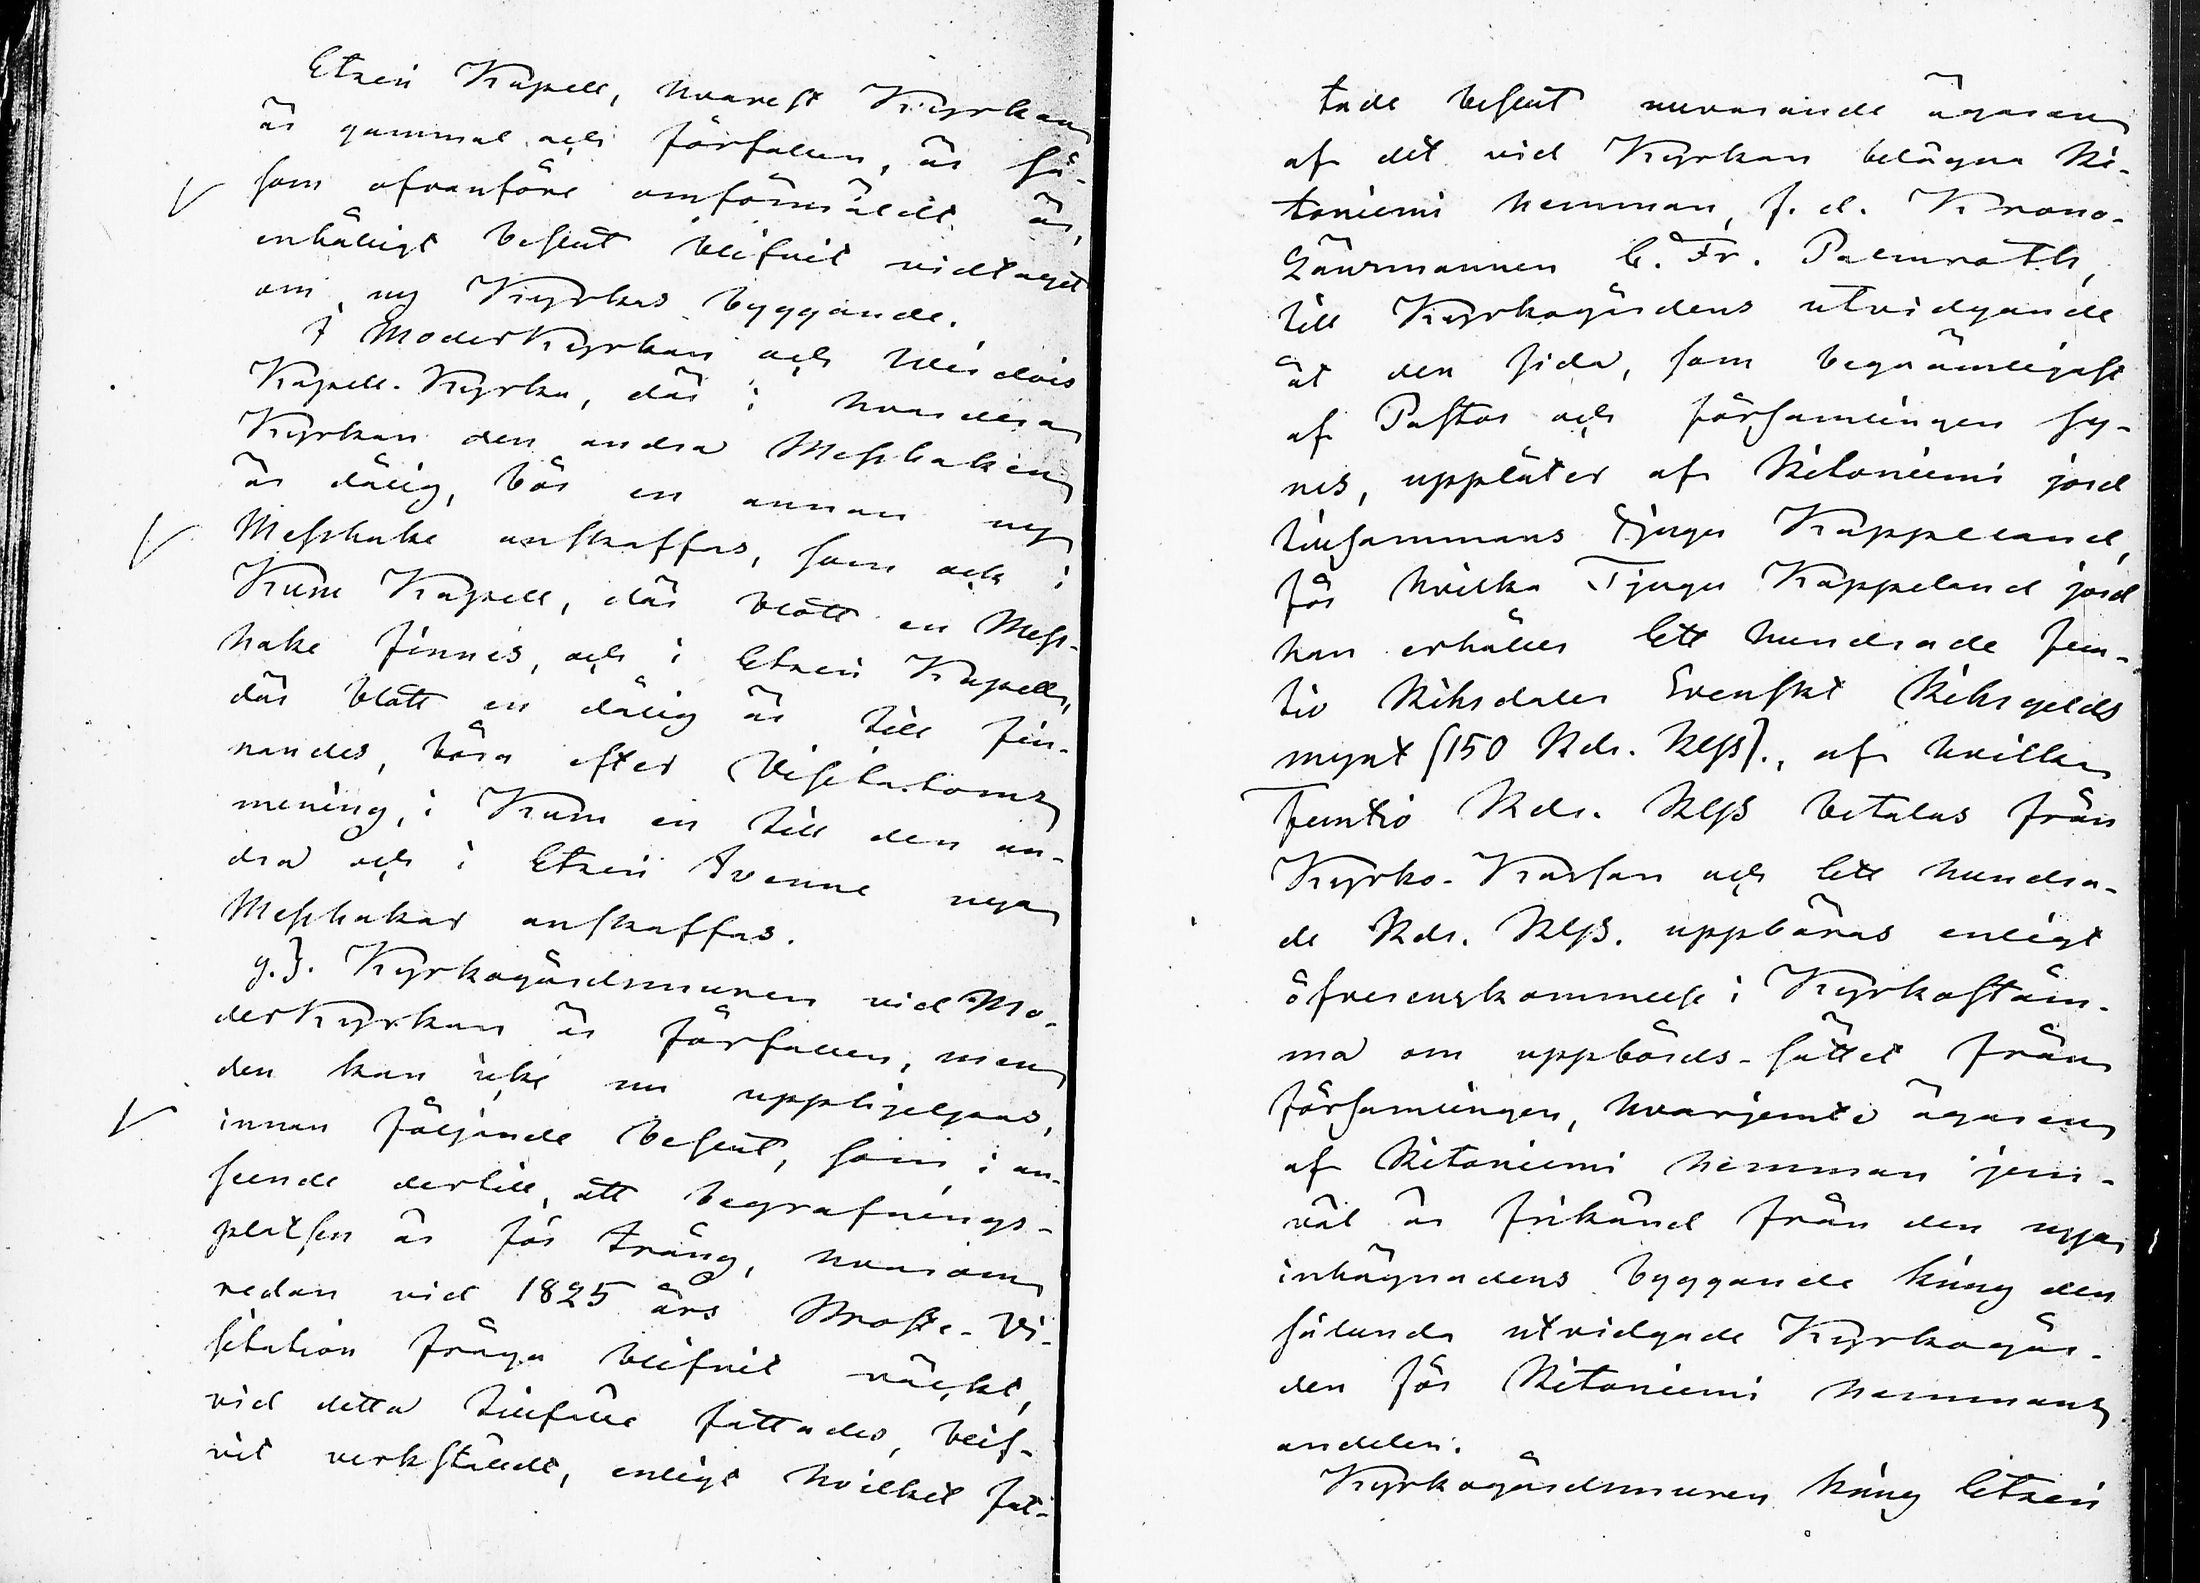 Etseri Kapell, hvarest Kyrkan
är gammal och förfallen, är så-
som ofvanföre omförmäldt är,
enhälligt beslut blifvit vidtaget
om ny Kyrkas byggande.
I Moderkyrkan och Virdois
Kapell-Kyrka, där i hvardera
Kyrkan den andra Messhaken
är dålig, bör en annan ny
Messhake anskaffas, som och i
Kuru Kapell, där blott en Mess-
hake finnes, och i Etseri Kapell,
där blott en dålig är till fin-
nandes, böra efter Visitators
mening, i Kuru en till den an-
dra och i Etseri tvenne nya
Messhakar anskaffas.
g.). Kyrkogårdsmuren vid Mo-
derkyrkan är förfallen, men
den kan icke nu upphjelpas,
innan följande beslut, som i an-
seende dertill, att begrafnings-
platsen är för trång, hvarom
redan vid 1825 års Prosts-Vi-
sitation fråga blifvit väckt,
vid detta tillfälle fattades, blif-
vit verkstäldt, enligt hvilket fat-
tade beslut nuvarande ägaren
af det vid Kyrkan belägna Ri-
toniemi hemman, f. d. Krono-
Länsmannen C. Fr. Palmroth,
till Kyrkogårdens utvidgande
åt den sida, som beqvämligast
af Pastor och församlingen sy-
nes, upplåter af Ritoniemi jord
tillsammans Tjugu Kappeland,
för hvilka Tjugu Kappeland jord
han erhåller Ett hundrade fem-
tio Riksdaler Svenskt Riksgelds
mynt (150 Rdr. Rgs)., af hvilka
Femtio Rdr. Rgs betalas från
Kyrko-Kassan och Ett hundra-
de Rdr. Rgs. uppbäras enligt
öfverenskommelse i Kyrkostäm-
ma om uppbörds-sättet från
församlingen, hvarjemte ägaren
af Ritoniemi hemman jem-
väl är frikänd från den nya
inhägnadens byggande kring den
sålunda utvidgade Kyrkogår-
den för Ritoniemi hemmans
andelen.
Kyrkogårdsmuren kring Etseri